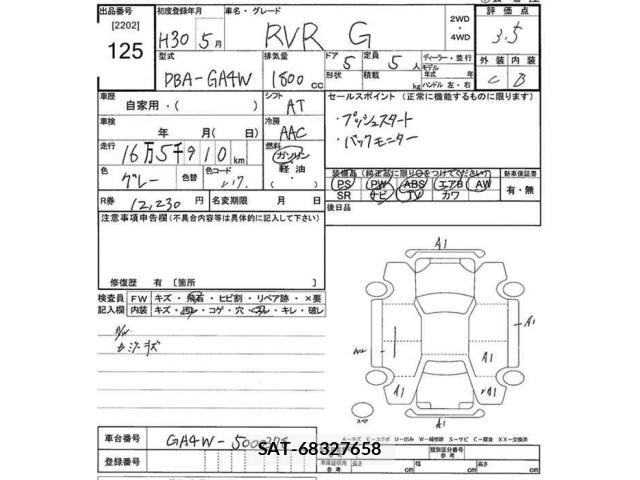 出品番号 初度登録年月 車名・グレード 2WD・4WD 評価点
[2202] H30 5月 RVR G 3.5
125
型式 排気量 ドア 5 定員 5人 ディーラー・並行 外装 内装
DBA-GA4W 1800cc 形状 積載 kg モデル年式 年 ハンドル 左・右 C B
車歴 自家用・( ) シフト AT セールスポイント (正常に機能するものに限ります)
車検 年 月(日) 冷房 AAC ・プッシュスタート
・バックモニター
走行 16万5千910km 燃料 ガソリン 軽油・( )
色 グレー 色替 色コード 装備品 (純正品に限り○をつけてください) 新車保証書
PS PW ABS エアB AW 有・無
SR ナビ TV カワ
R券 12,230円 名変期限 月 日 後日品
注意事項申告欄(不具合内容等は具体的に記入して下さい)
修復歴 有 [箇所 ]
検査員記入欄 FW キズ・飛石・ヒビ割・リペア跡・×要
内装 キズ・汚レ・コゲ・穴・スレ・キレ・破レ
A1
A1
A1
A1
A1
A1
A1
A-キズ E-エクボ U-凹み W-補修跡 S-サビ C-腐食 XX-交換済
車台番号 GA4W-
登録番号
SAT-68327658
類別区分番号
長さ cm 幅 cm 高さ cm